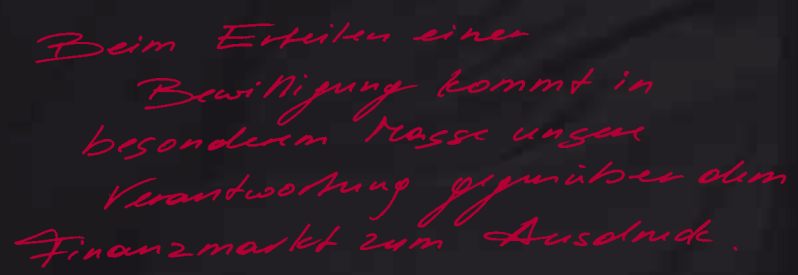 Beim Erteilen einer
Bewilligung kommt in
besonderem Masse unsere
Verantwortung gegenüber dem
Finanzmarkt zum Ausdruck.